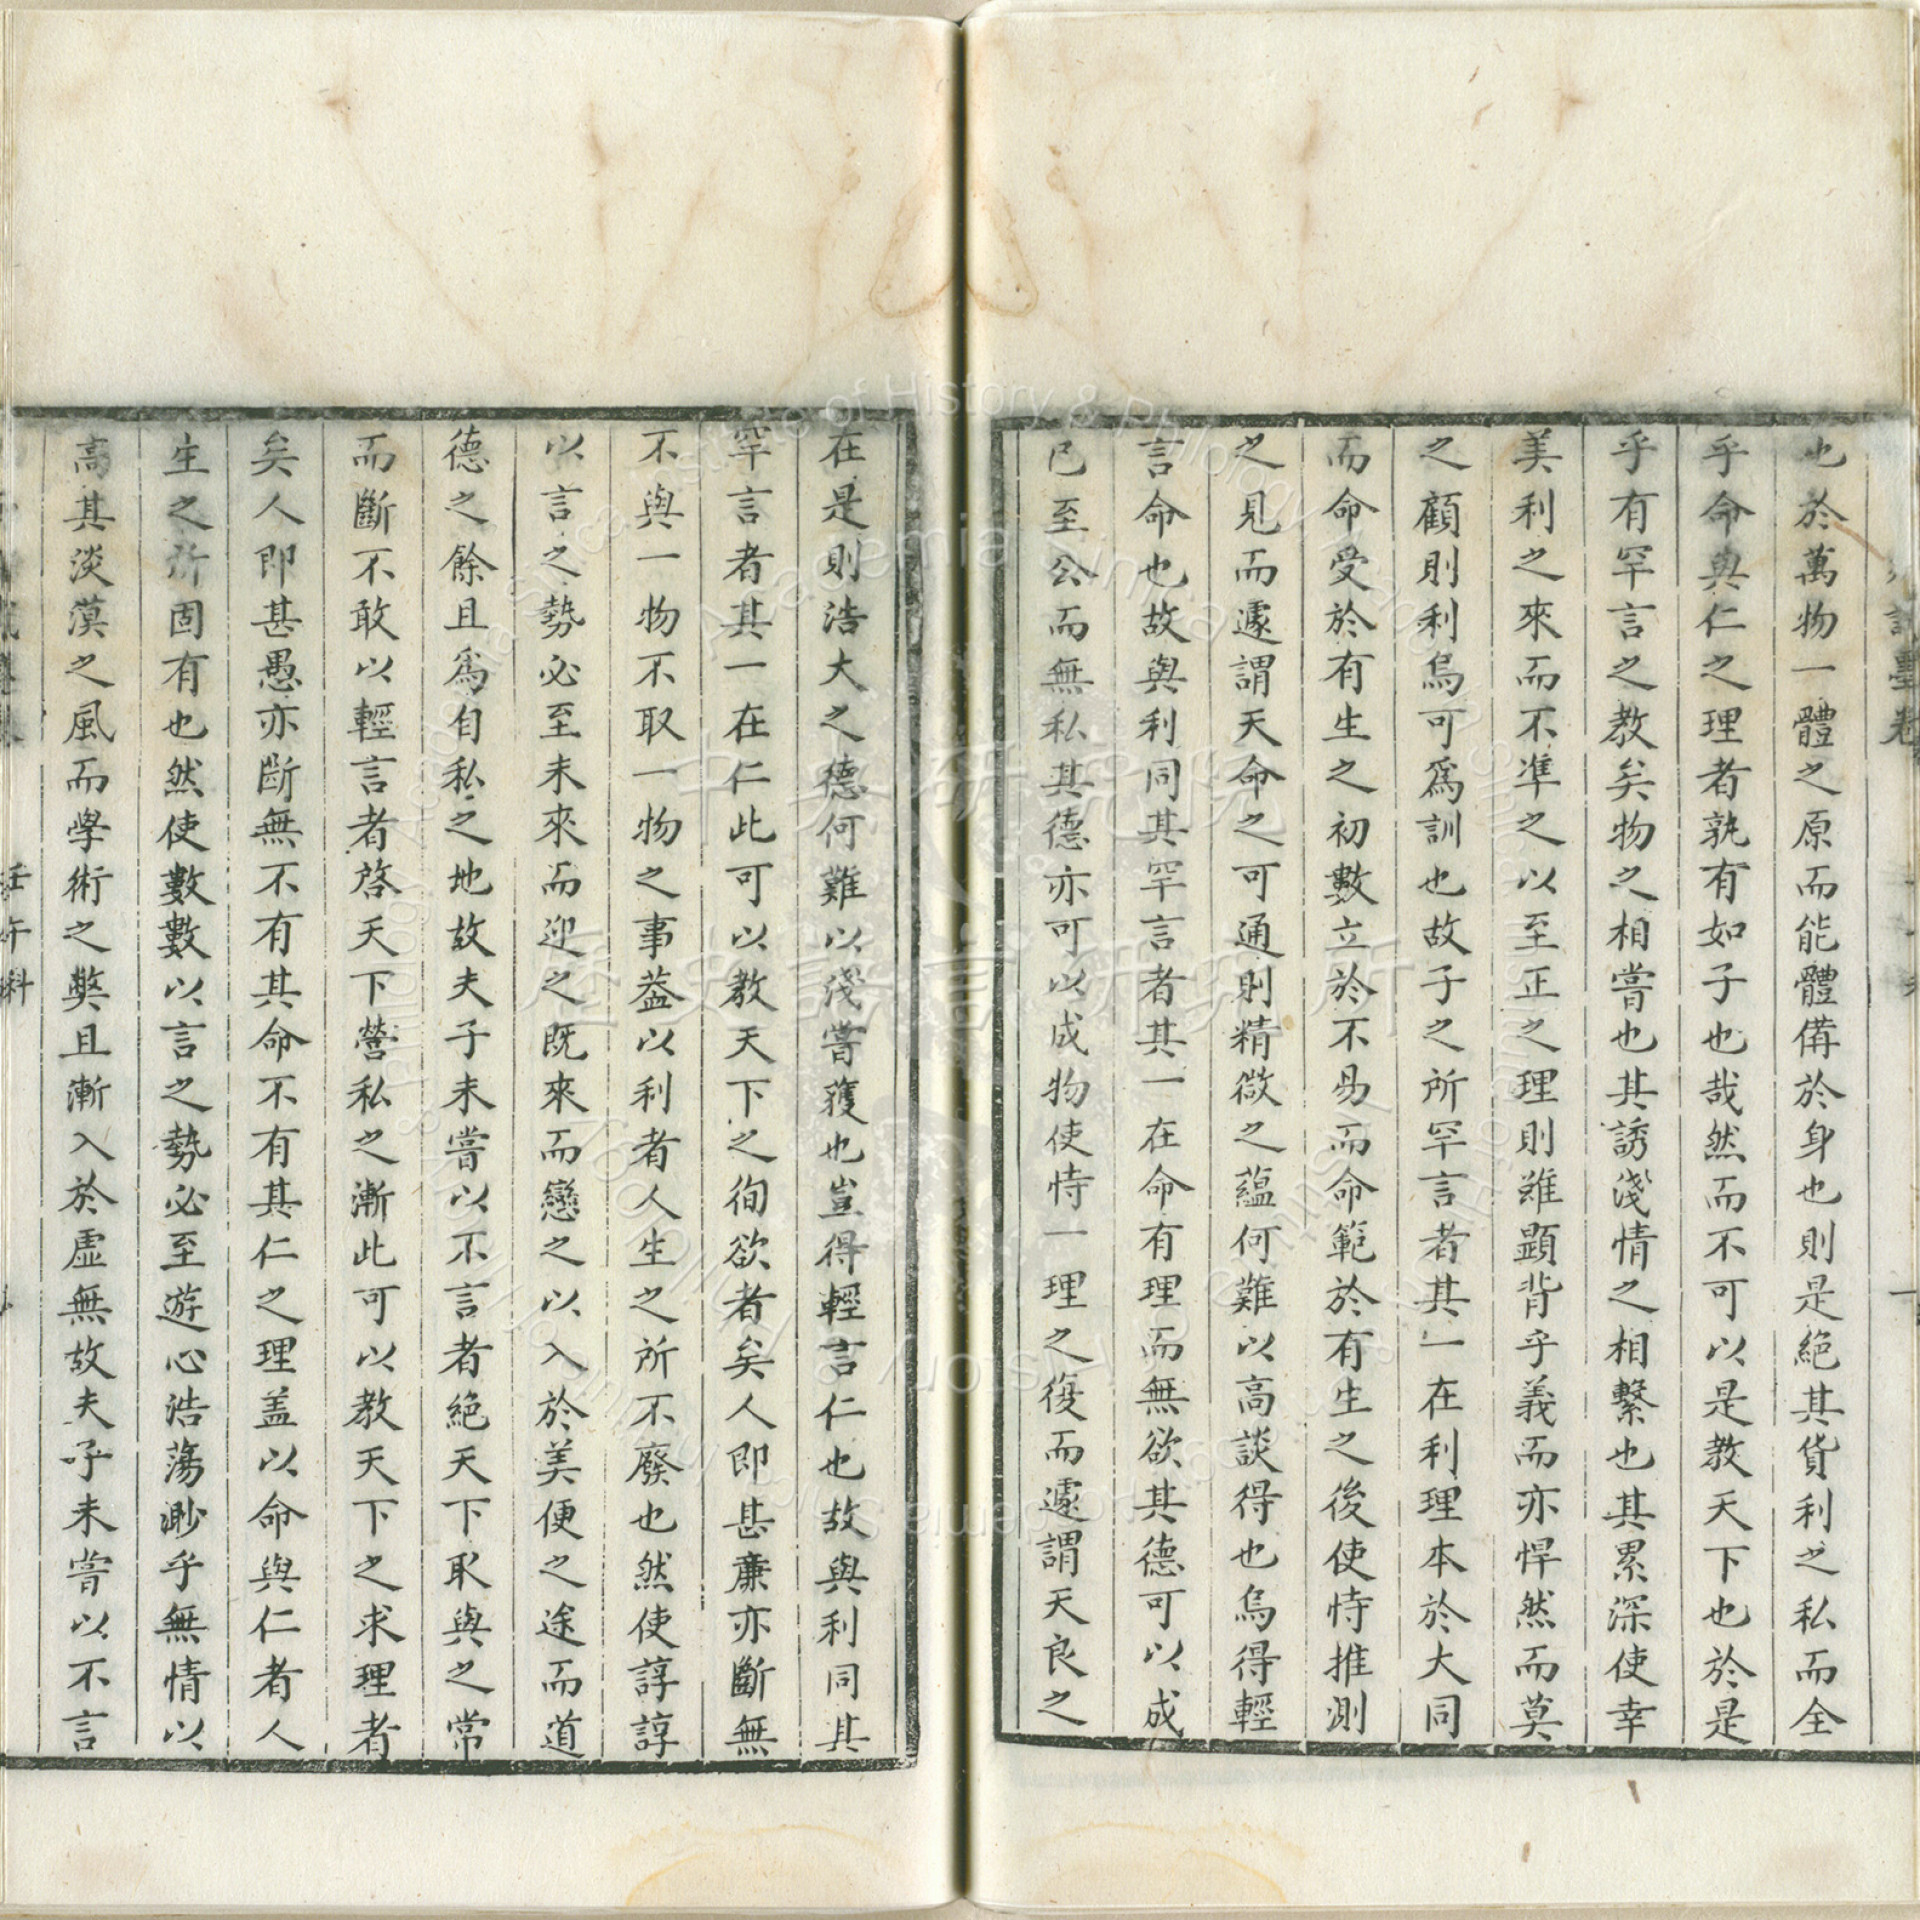 也於萬物一體之原而能體備於身也則是絕其貨利之私而全
乎命與仁之理者孰有如子也哉然而不可以是教天下也於是
乎有罕言之教矣物之相嘗也其誘淺情之相繫也其累深使幸
美利之來而不準之以至正之理則雖顯背乎義而亦悍然而莫
之顧則利烏可爲訓也故子之所罕言者其一在利理本於大同
而命受於有生之初數立於不易而命範於有生之後使恃推測
之見而遽謂天命之可通則精微之蘊何難以高談得也烏得輕
言命也故與利同其罕言者其一在命有理而無欲其德可以成
已至公而無私其德亦可以成物使恃一理之復而遽謂天良之
在是則浩大之德何難以淺嘗獲也豈得輕言仁也故與利同其
罕言者其一在仁此可以教天下之徇欲者矣人即甚廉亦斷無
不與一物不取一物之事葢以利者人生之所不廢也然使諄諄
以言之勢必至未來而迎之既來而戀之以入於美便之途而道
德之餘且爲自私之地故夫子未嘗以不言者絕天下取與之常
而斷不敢以輕言者啓天下營私之漸此可以教天下之求理者
矣人即甚愚亦斷無不有其命不有其仁之理盖以命與仁者人
生之所固有也然使數數以言之勢必至遊心浩蕩渺乎無情以
高其淡漠之風而學術之弊且漸入於虛無故夫子未嘗以不言
壬午科